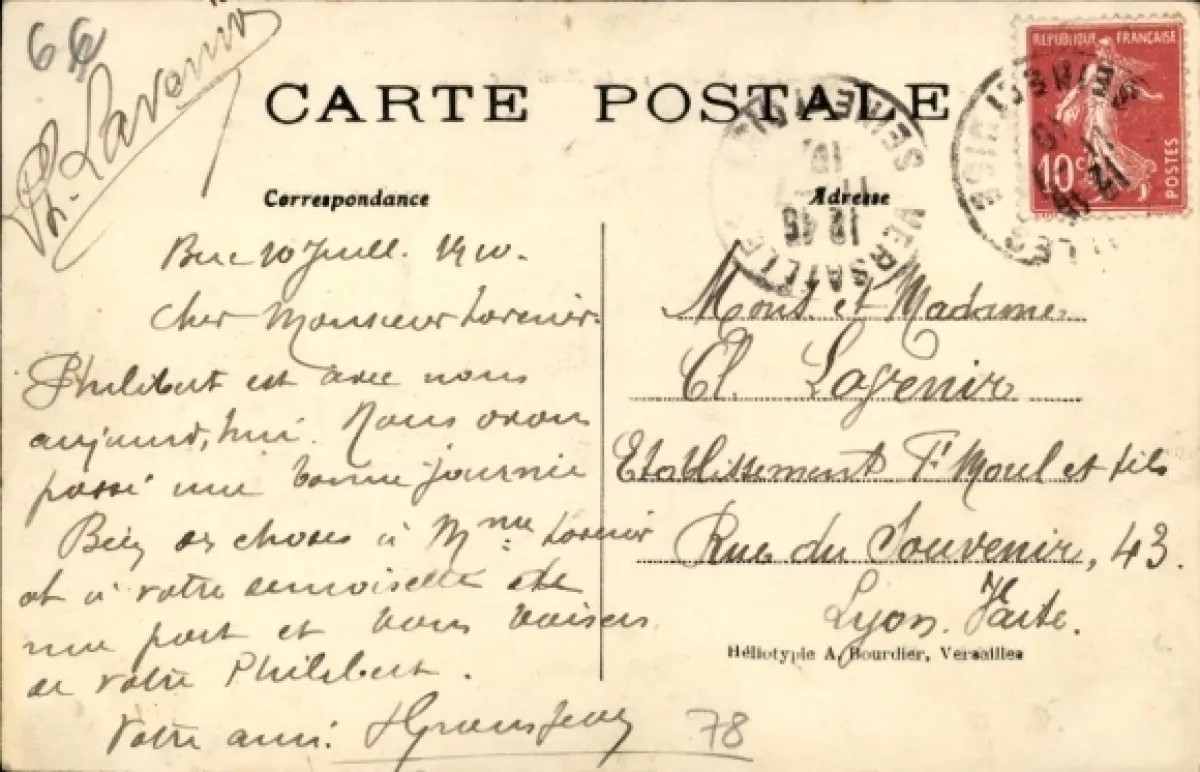 66
Ph. Lavenir
CARTE POSTALE
Correspondance
Adresse
REPUBLIQUE FRANÇAISE
10c
POSTES
VERSAILLES
SEINE
12 45
Buc 10 Juill. 1910.
Cher Monsieur Lavenir.
Philibert est avec nous
aujourd'hui. Nous avon
passé une bonne journée
Bien des choses à Mme Lavenir
et à votre demoiselle de
ma part et bons baisers
de votre Philibert.
Votre ami.
78
Mons. et Madame
Cl. Lavenir
Etablissement F. Morel et fils
Rue du Souvenir, 43.
Lyon. Vaise.
Héliotypie A. Bourdier, Versailles